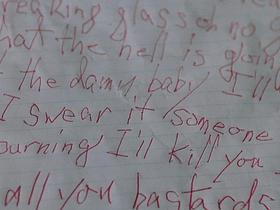 reaking glass oh no g
hat the hell is goin
the damn baby I'll
I swear it someone
ourning I'll kill you
all you bastards